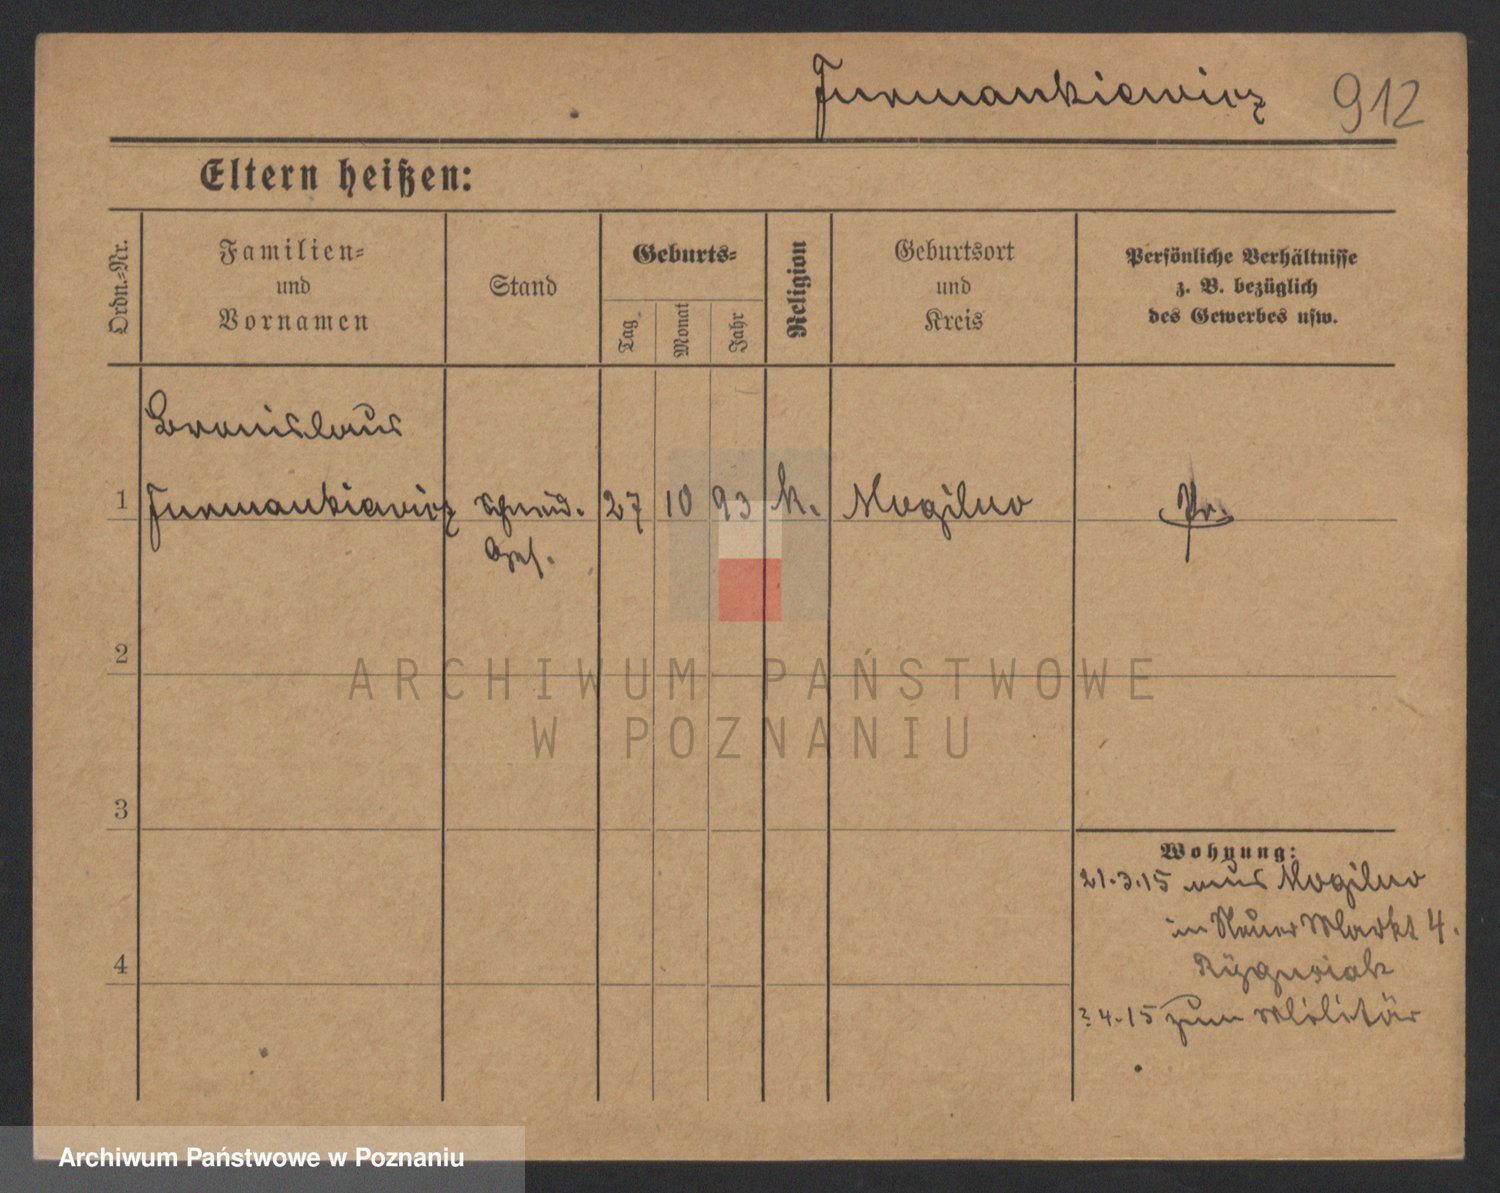 Furmankiewicz 912
Eltern heißen:
Ordn.-Nr.
Familien-
und
Vornamen
Stand
Geburts-
Tag
Monat
Jahr
Religion
Geburtsort
und
Kreis
Persönliche Verhältnisse
z. B. bezüglich
des Gewerbes usw.
Bronislaus
1 Furmankiewicz Schneid. 27 10 93 k. Mogilno Pr.
Ges.
2
3
4
Wohnung:
21.3.15 aus Mogilno
in Neuer Markt 4.
4.15 zum Militär
ARCHIWUM PAŃSTWOWE
W POZNANIU
Archiwum Państwowe w Poznaniu